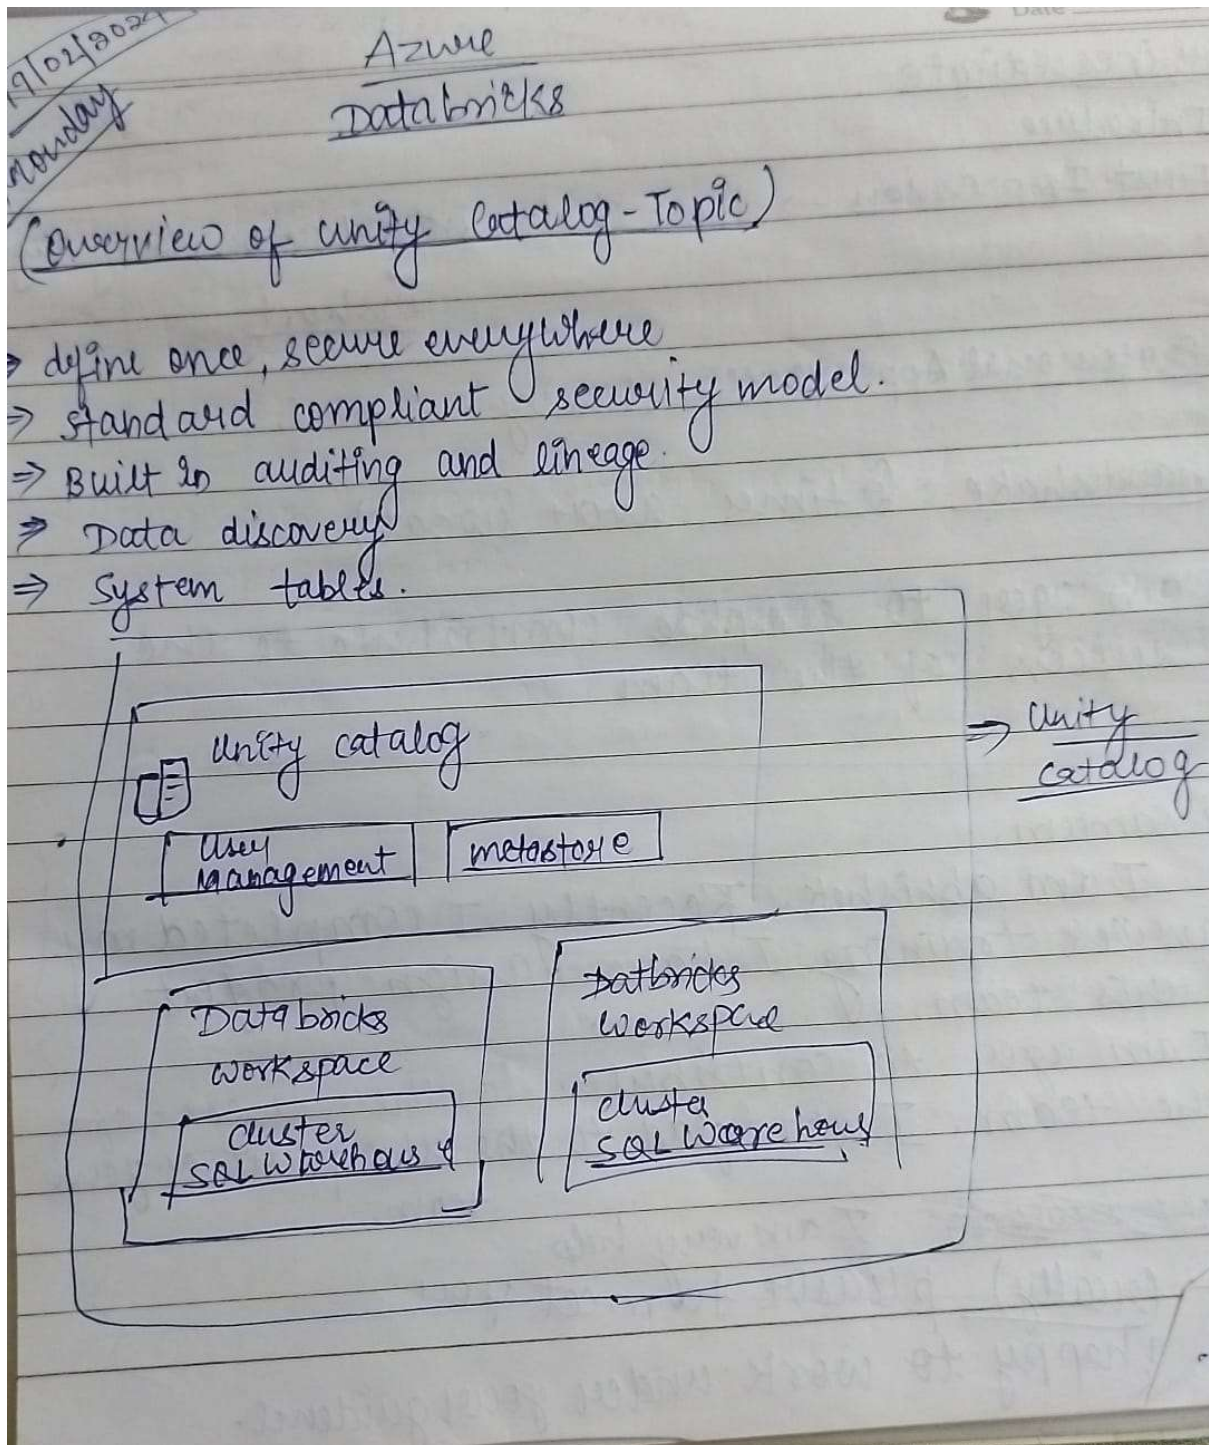 19/02/2024
Monday
Azure
Databricks
(Overview of unity Catalog-Topic)
→ define once, secure everywhere
⇒ standard compliant security model.
⇒ Built in auditing and lineage.
⇒ Data discovery
⇒ System tables.
Unity catalog
User
Management
metastore
⇒ Unity
catalog
Databricks
workspace
cluster
SQL Warehouse
Datbricks
workspace
cluster
SQL Warehouse